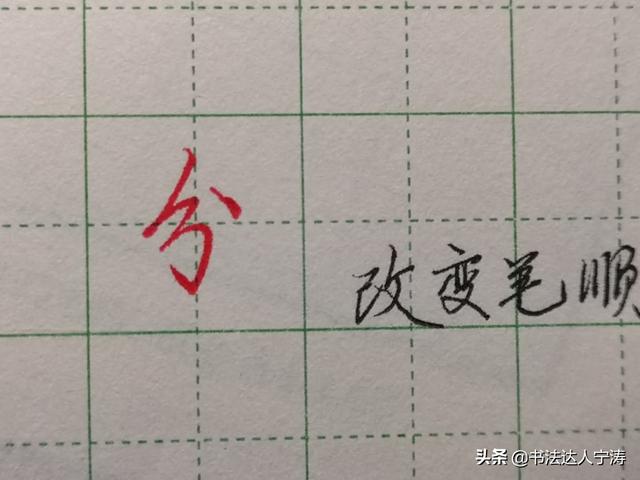 分
改变笔顺
头条 @书法达人宁涛